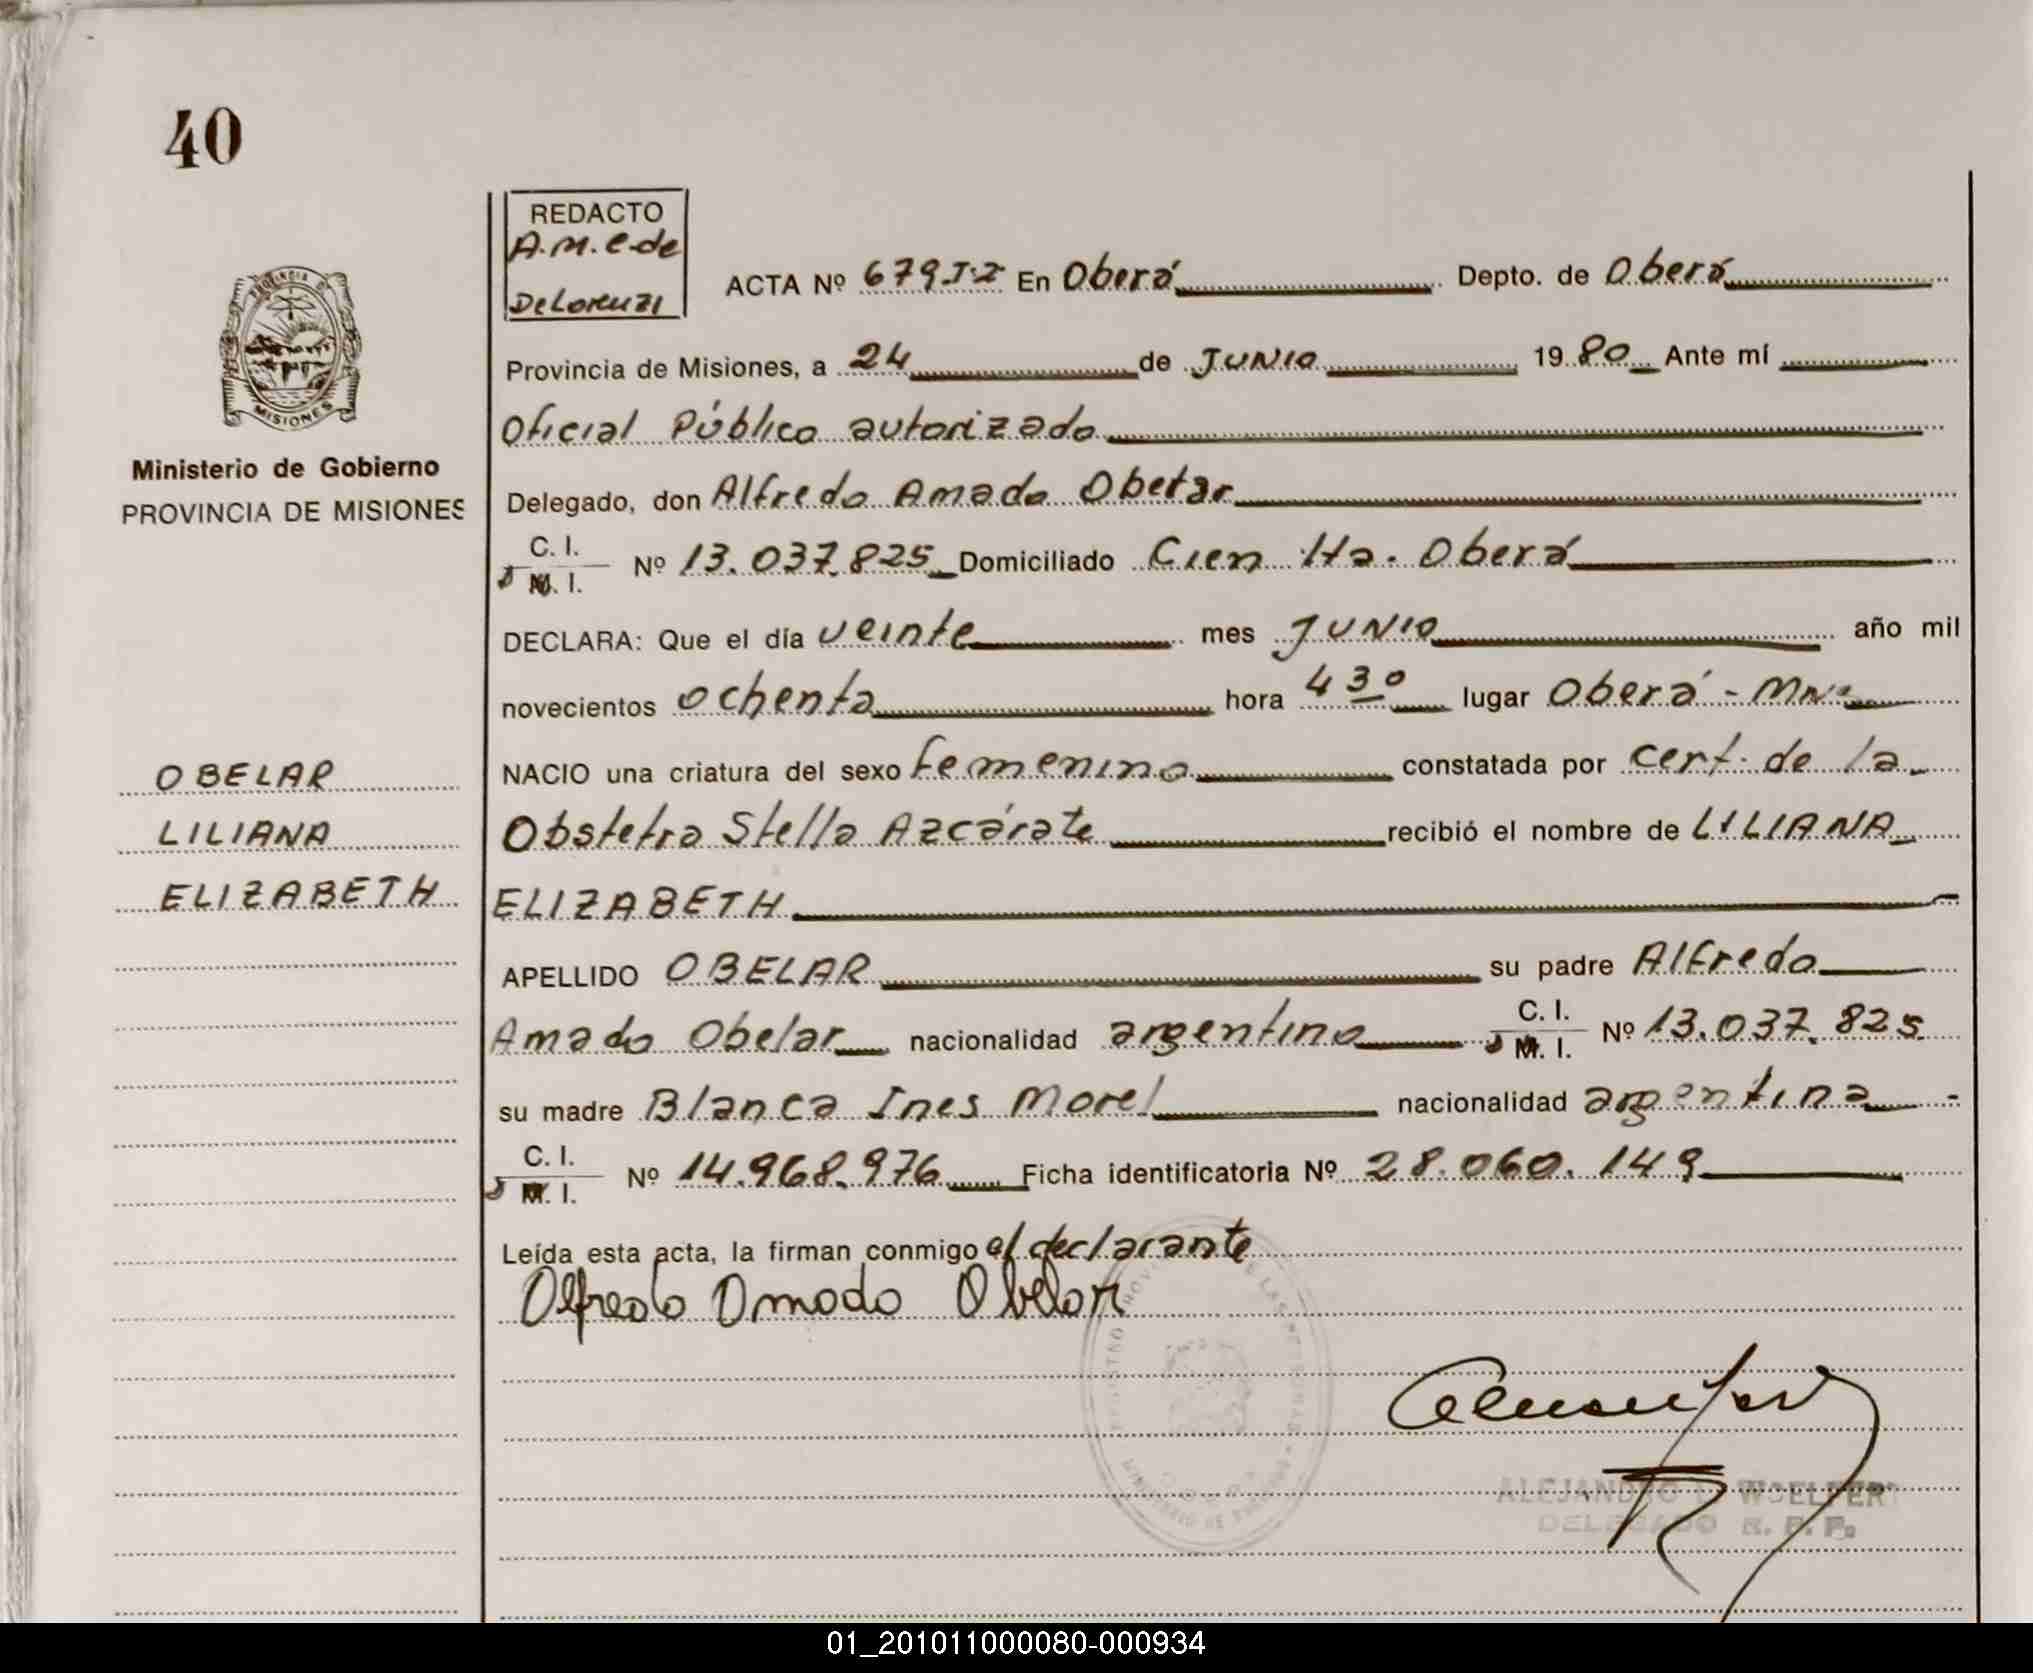 40
REDACTO
A.M.C. de
De Lorenzi
ACTA Nº 679 I-Z En Oberá Depto. de Oberá
Provincia de Misiones, a 24 de JUNIO 1980 Ante mí
Oficial Público autorizado
MISIONES
Ministerio de Gobierno
PROVINCIA DE MISIONES
Delegado, don Alfredo Amado Obelar
C. I.
M. I. Nº 13.037.825 Domiciliado Cien Ha. Oberá
DECLARA: Que el día veinte mes JUNIO año mil
novecientos ochenta hora 4 30 lugar Oberá - Mnes
OBELAR
NACIO una criatura del sexo femenino constatada por cert. de la
LILIANA
Obstetra Stella Azcárate recibió el nombre de LILIANA
ELIZABETH
ELIZABETH
APELLIDO OBELAR su padre Alfredo
Amado Obelar nacionalidad argentino C. I. M. I. Nº 13.037.825
su madre Blanca Ines Morel nacionalidad argentina
C. I.
M. I. Nº 14.968.976 Ficha identificatoria Nº 28.060.149
Leída esta acta, la firman conmigo el declarante
Alfredo Amado Obelar
ALEJANDRO
DELEGADO R. P. P.
01_201011000080-000934